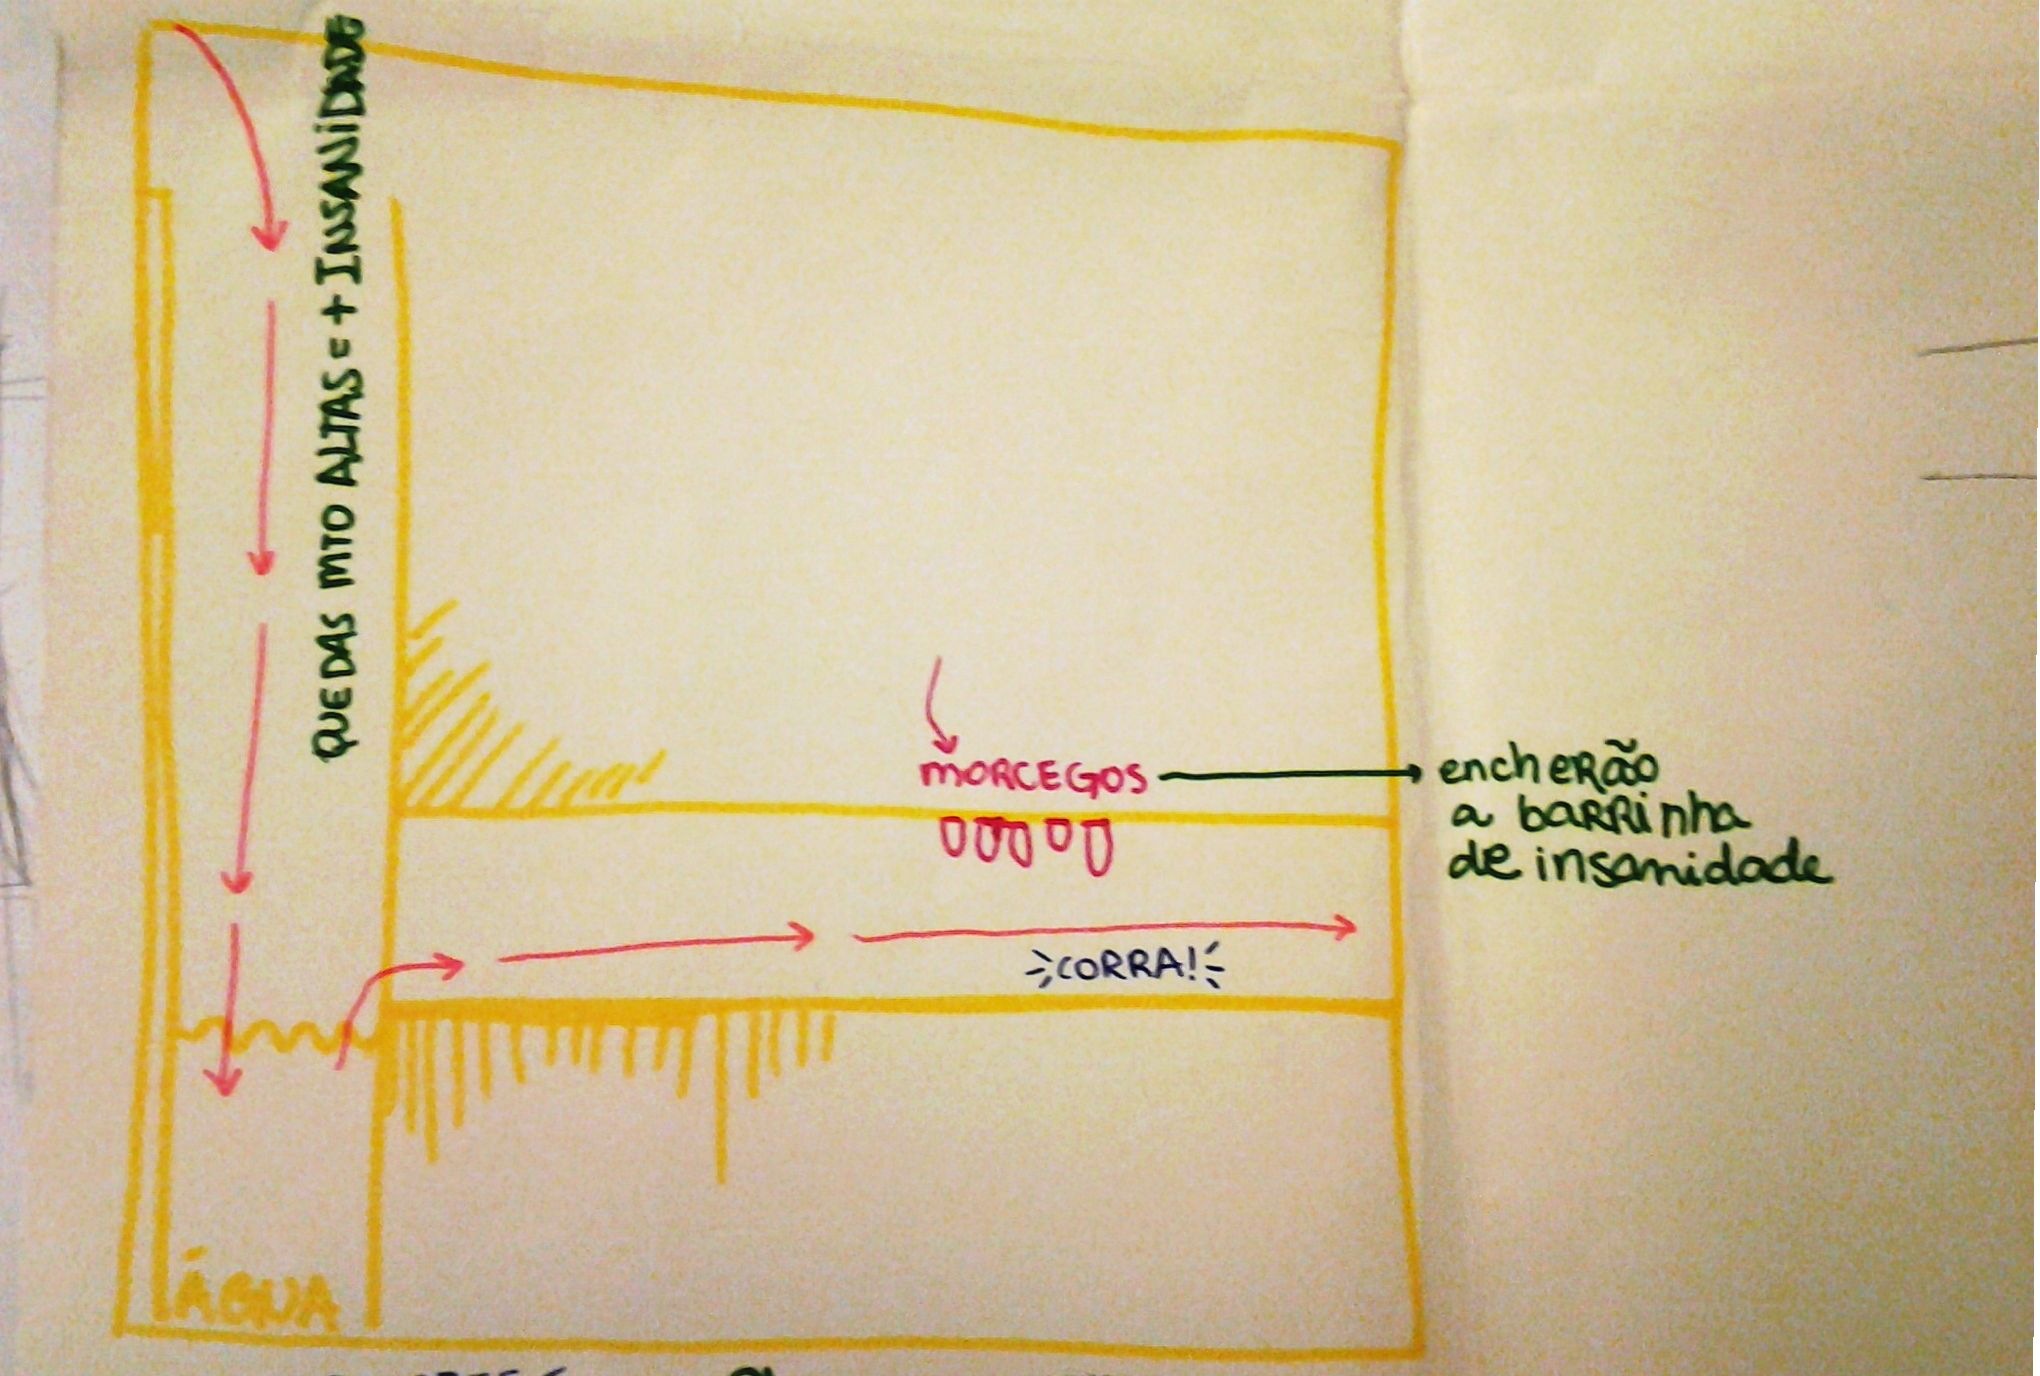 QUEDAS MTO ALTAS = + INSANIDADE
MORCEGOS
encherão
a barrinha
de insanidade
CORRA!
ÁGUA